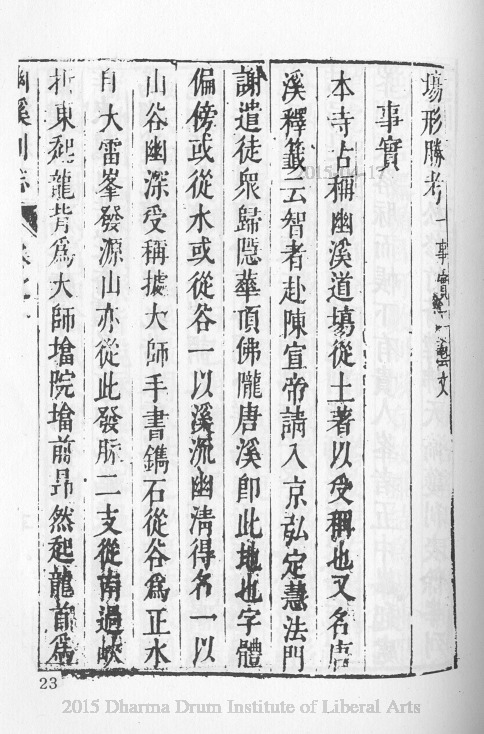 塲形勝考一 事實 藝文
事實
本寺古稱幽溪道塲從土著以受稱也又名唐
溪釋籖云智者赴陳宣帝請入京弘定慧法門
謝遣徒衆歸隱華頂佛隴唐溪卽此地也字體
偏傍或從水或從谷一以溪流幽淸得名一以
山谷幽深受稱據大師手書鐫石從谷爲正水
自大雷峯發源山亦從此發脈二支從南過峽
折東起龍背爲大師墖院墖前昻然起龍首爲
幽溪別志
23
2015-04-17
2015 Dharma Drum Institute of Liberal Arts